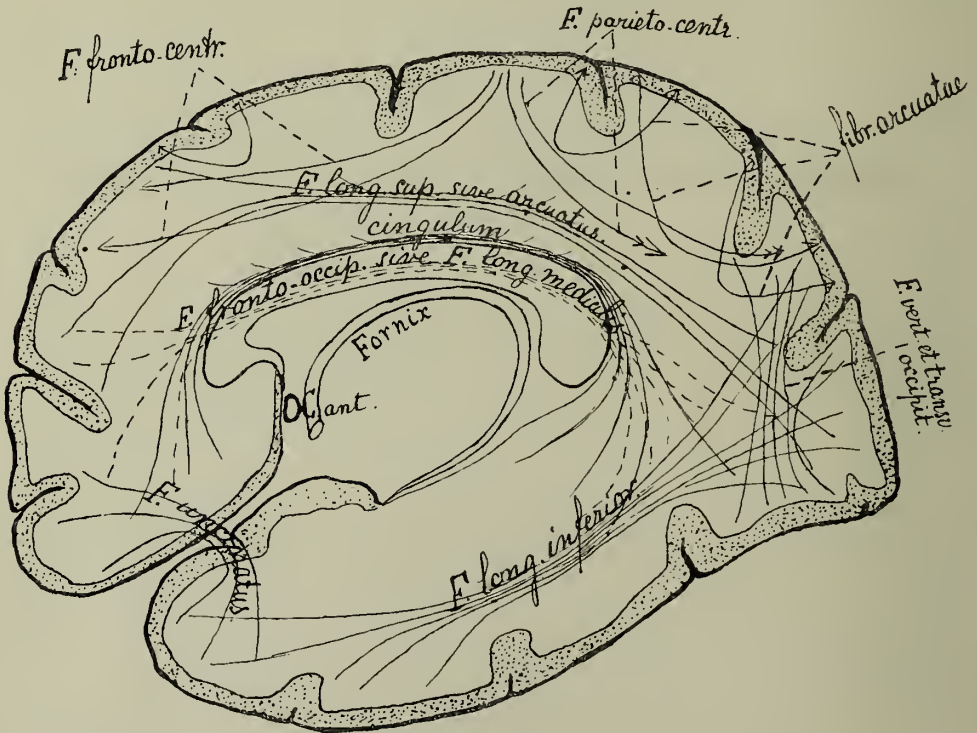 F. fronto-centr.
F. parieto-centr.
fibr. arcuatae
F. long. sup. sive arcuatus.
cingulum
F. fronto-occip. sive F. long. medialis
Fornix
C. ant.
F. vert. et transv.
occipit.
F. uncinatus
F. long. inferior